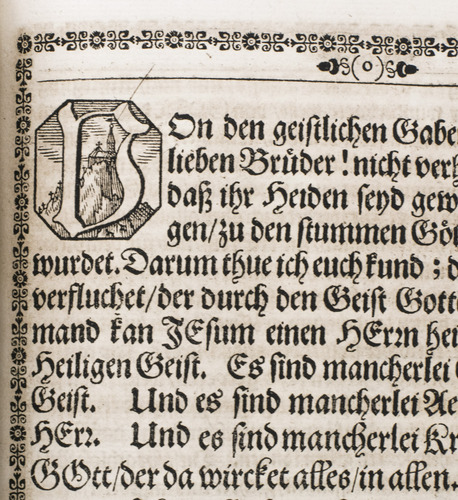 (o)
VOn den geistlichen Gabe
lieben Brüder! nicht ver
daß ihr Heiden seyd gew
gen/zu den stummen Gö
wurdet. Darum thue ich euch kund; d
verfluchet/der durch den Geist Gott
mand kan JEsum einen HErrn hei
Heiligen Geist. Es sind mancherlei
Geist. Und es sind mancherlei Ae
HErr. Und es sind mancherlei Kr
GOtt/der da wircket alles/in allen.